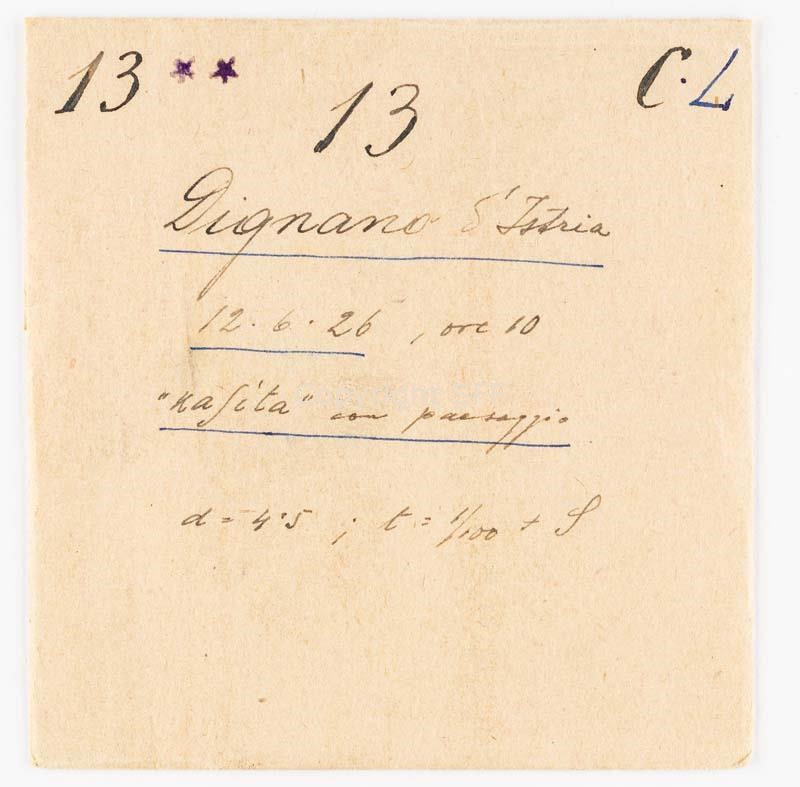 13 ** 13 C.L
Dignano d'Istria
12.6.26, ore 10
"Kaſita" con paesaggio
d = 4.5 ; t = 1/100 + S